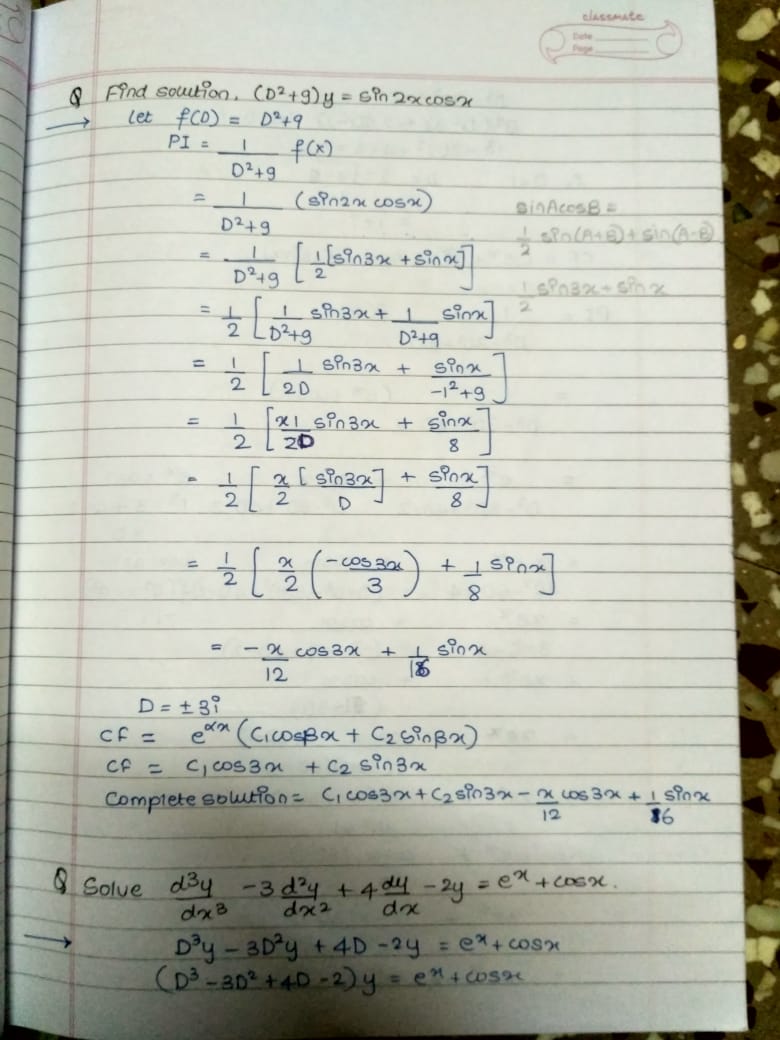 classmate
Date
Page
Q Find solution. (D²+9)y = sin2xcosx
→ let f(D) = D²+9
PI = 1/(D²+9) f(x)
= 1/(D²+9) (sin2x cosx)
sinAcosB =
1/2 sin(A+B) + sin(A-B)
= 1/(D²+9) [1/2 [sin3x + sinx]]
1/2 sin3x + sinx
= 1/2 [1/(D²+9) sin3x + 1/(D²+9) sinx]
= 1/2 [1/2D sin3x + sinx/(-1²+9)]
= 1/2 [x1/2D sin3x + sinx/8]
= 1/2 [x/2 [sin3x/D] + sinx/8]
= 1/2 [x/2 (-cos3x/3) + 1/8 sinx]
= -x/12 cos3x + 1/16 sinx
D = ±3i
CF = e^αx (C₁cosβx + C₂sinβx)
CF = C₁cos3x + C₂ sin3x
Complete solution = C₁ cos3x + C₂ sin3x - x/12 cos3x + 1/16 sinx
Q Solve d³y/dx³ - 3 d²y/dx² + 4 dy/dx - 2y = e^x + cosx.
→ D³y - 3D²y + 4D - 2y = e^x + cosx
(D³ - 3D² + 4D - 2)y = e^x + cosx